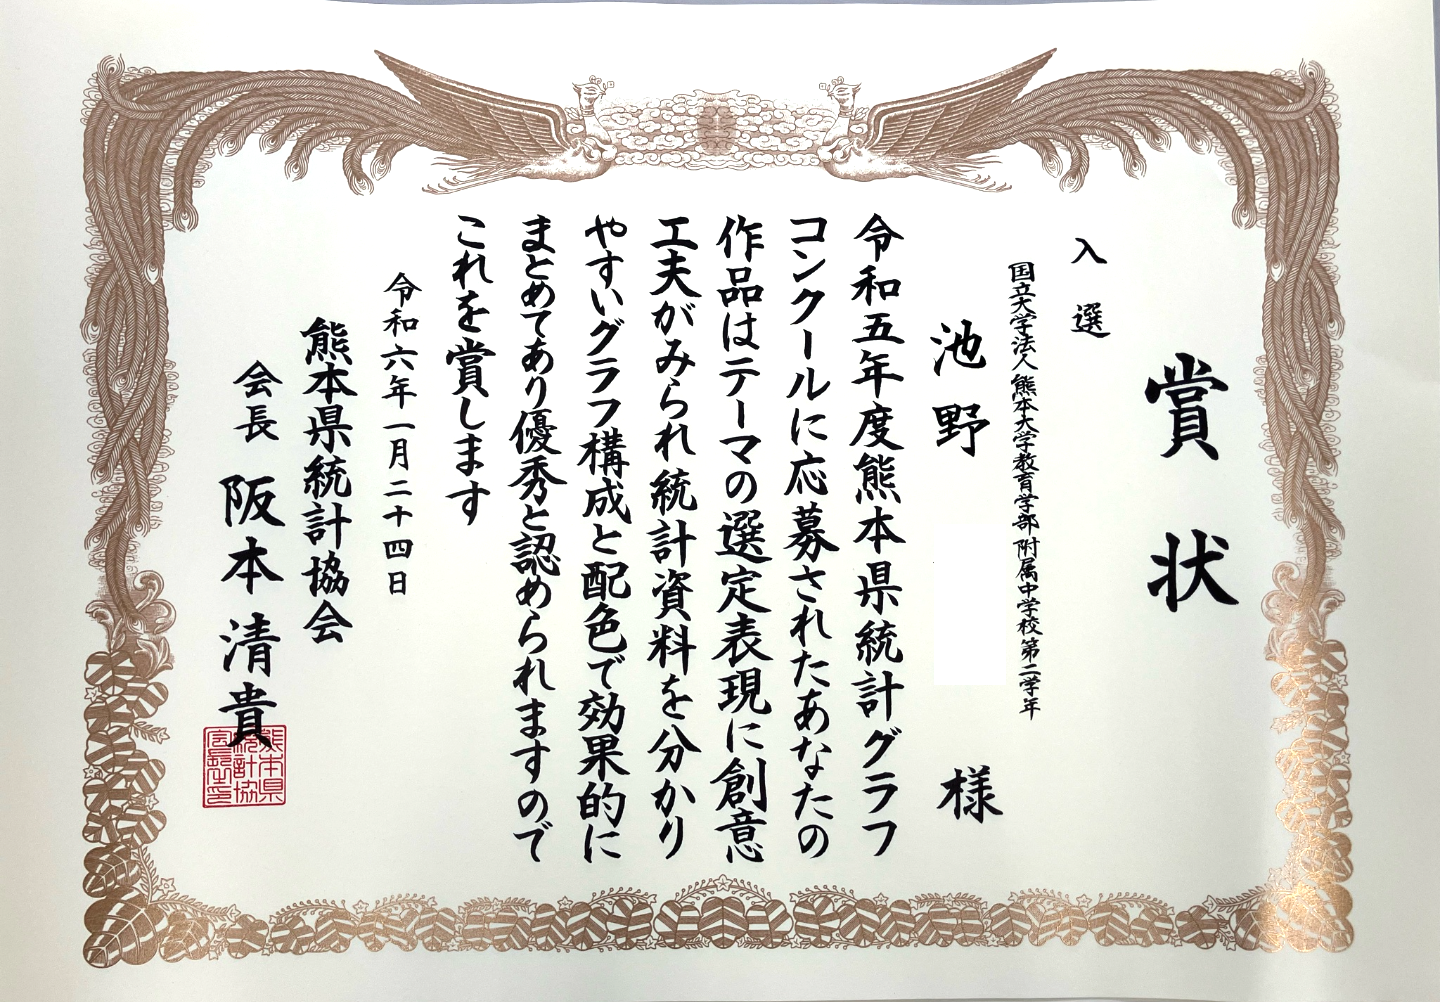 賞状
入選
国立大学法人 熊本大学教育学部 附属中学校 第二学年
池野 様
令和五年度熊本県統計グラフ
コンクールに応募されたあなたの
作品はテーマの選定表現に創意
工夫がみられ統計資料を分かり
やすいグラフ構成と配色で効果的に
まとめてあり優秀と認められますので
これを賞します
令和六年一月二十四日
熊本県統計協会
会長 阪本清貴